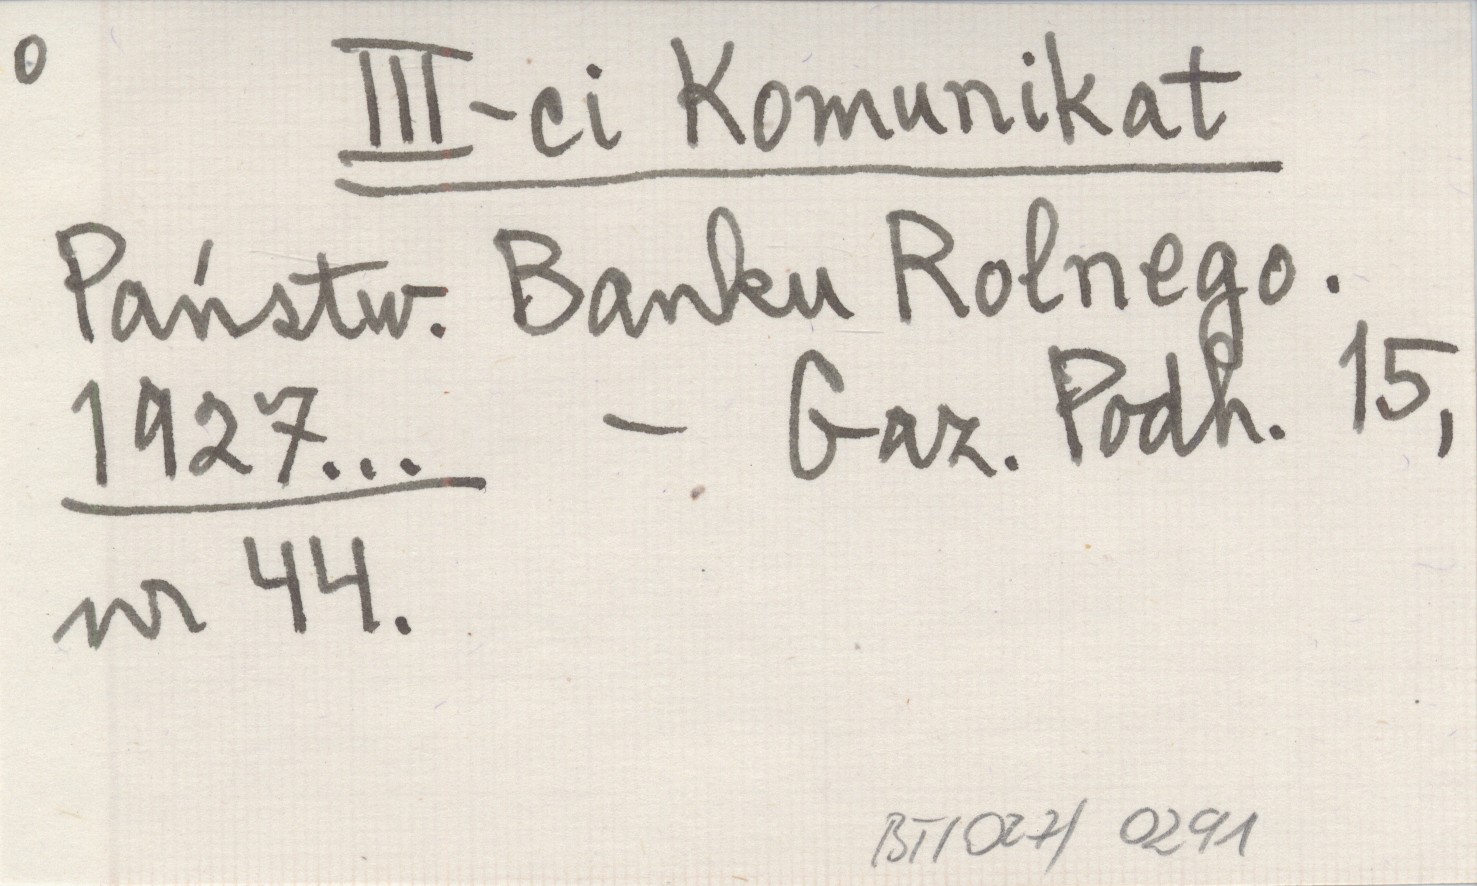 o
III-ci Komunikat
Państw. Banku Rolnego.
1927... – Gaz. Podh. 15,
nr 44.
BT/027/ 0291